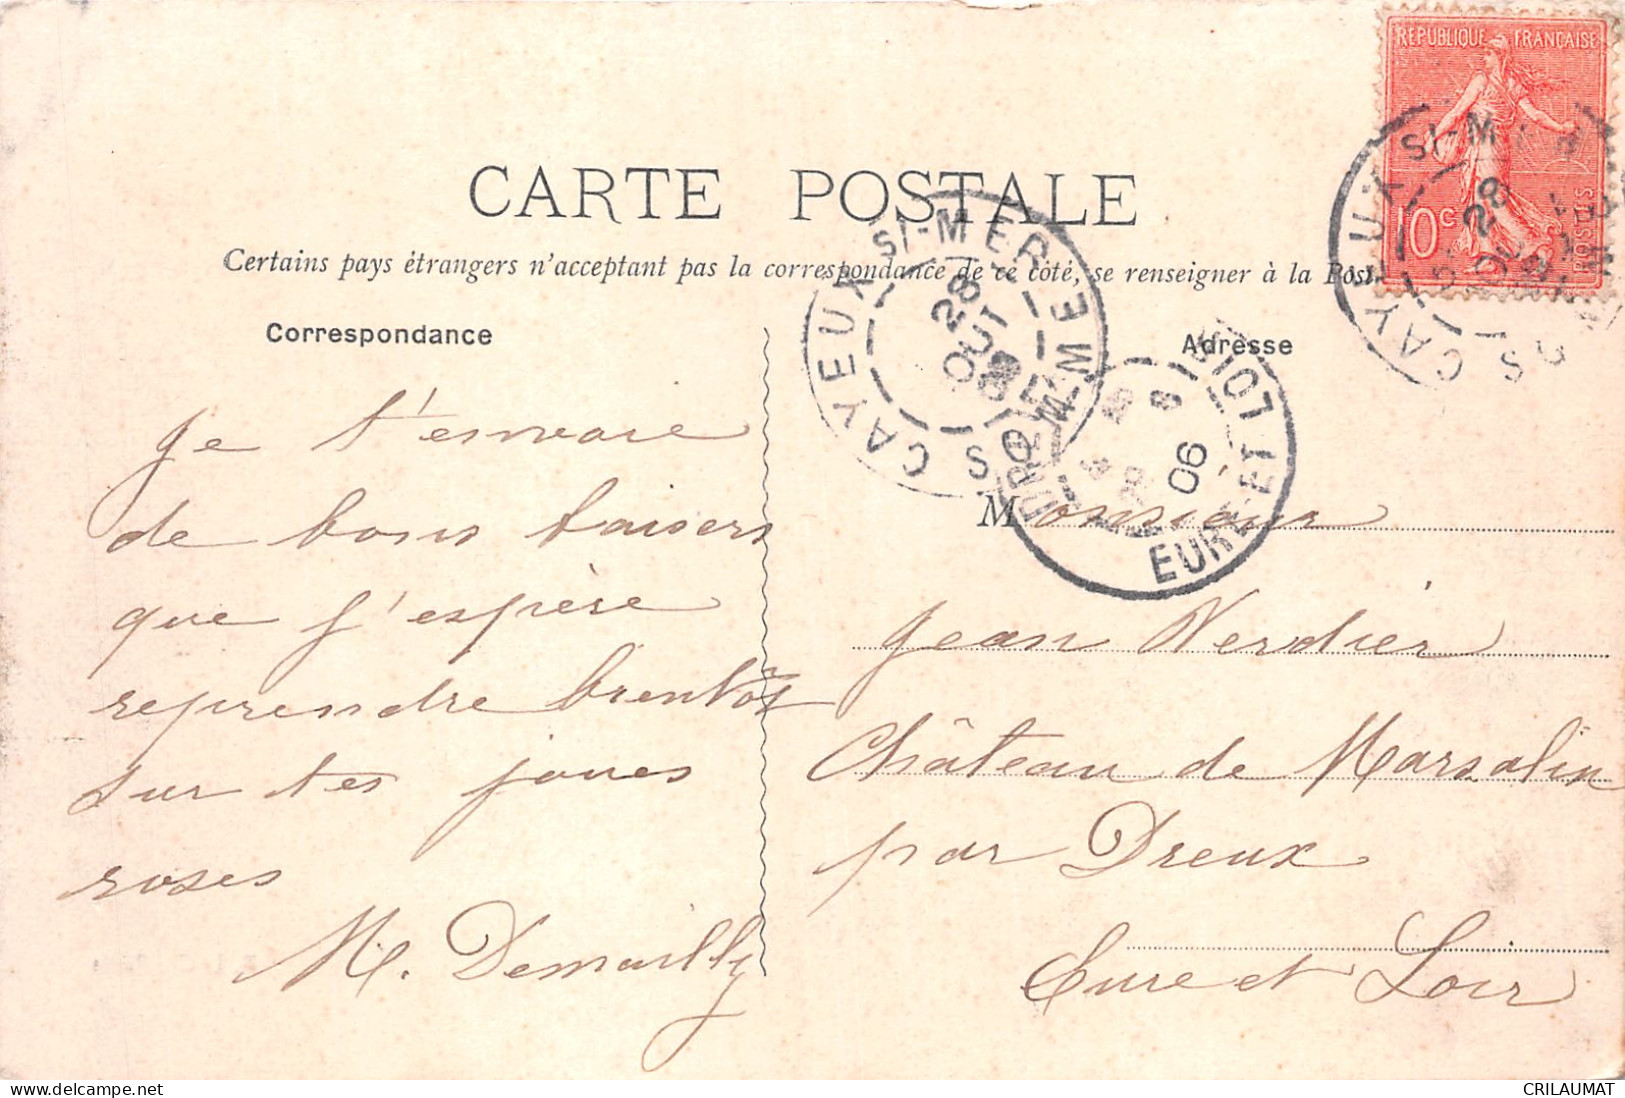 RÉPUBLIQUE FRANÇAISE
10c
POSTES
CARTE POSTALE
Certains pays étrangers n'acceptant pas la correspondance de ce côté, se renseigner à la Post
Correspondance
Adresse
CAYEUX S/-MER
28
OUT
SOMME
CAYEUX S/-MER
28
DREUX
EURE-ET-LOIR
06
Je t'envoie
de bons baisers
que j'espère
reprendre bientôt
sur tes joues
roses
M. Demailly
Monsieur
Jean Verdier
Château de Marsalin
par Dreux
Eure et Loir
CRILAUMAT